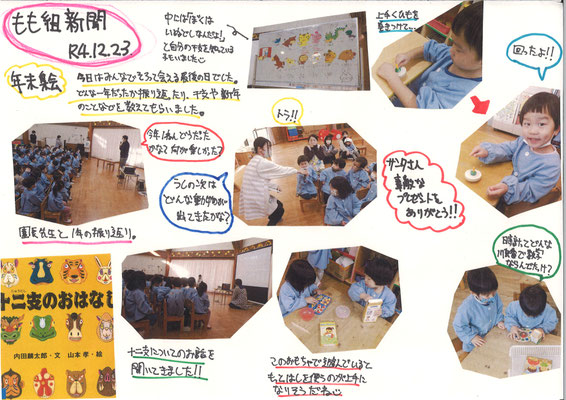 もも組新聞
R4.12.23
年末会
今日はみんなでそろって会える最後の日でした。
どんな一年だったか振り返ったり、干支や新年
のことなどを教えてもらいました。
中には「ぼくは
いぬどしなんだよ」
と自分の干支を知っている
子もいました
上手くひもを
巻きつけて…
回ったよ!!
今年1年どうだった
かな? 何が楽しかった?
トラ!!
うしの次は
どんな動物が
出てきたかな?
サンタさん
素敵な
プレゼントを
ありがとう!!
園長先生と1年の振り返り。
時計ってどんな
順番で数字
ならんでたっけ?
十二支のおはなし
内田麟太郎・文 山本 孝・絵
十二支についてのお話を
聞いてきました!!
このおもちゃで遊んでいると
もっとはしを使うのが上手に
なりそうだね